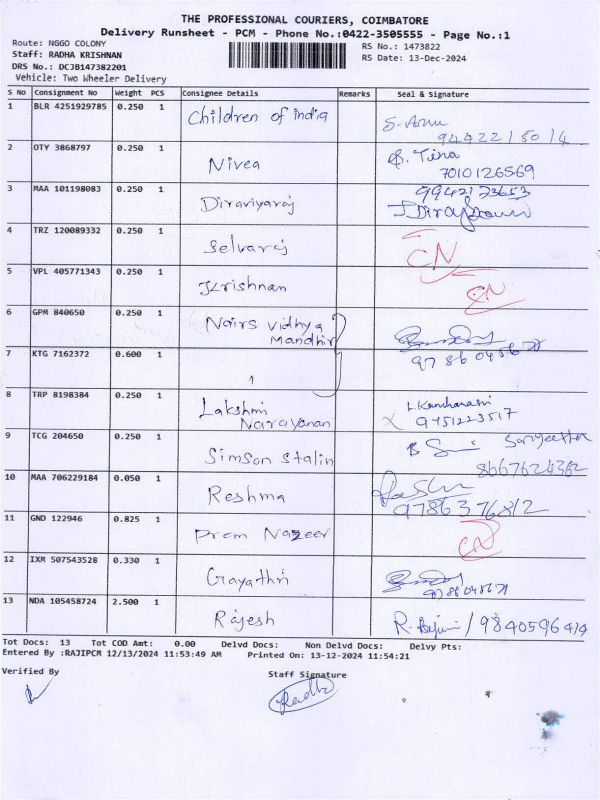 THE PROFESSIONAL COURIERS, COIMBATORE
Delivery Runsheet - PCM - Phone No.:0422-3505555 - Page No.:1
Route: NGGO COLONY
RS No.: 1473822
Staff: RADHA KRISHNAN
RS Date: 13-Dec-2024
DRS No.: DCJB147382201
Vehicle: Two Wheeler Delivery
S No Consignment No Weight PCS Consignee Details Remarks Seal & Signature
1 BLR 4251929785 0.250 1 Children of india
94422 15014
2 OTY 3868797 0.250 1 Nivea Tina
7010126569
3 MAA 101198083 0.250 1 Diraviyaraj
4 TRZ 120089332 0.250 1 Selvaraj CN
5 VPL 405771343 0.250 1 J Krishnan CN
6 GPM 840650 0.250 1 Nairs vidhya Mandhir
7 KTG 7162372 0.600 1
8 TRP 8198384 0.250 1 Lakshmi Narayanan
9451223517
9 TCG 204650 0.250 1 Simson Stalin
8667624362
10 MAA 706229184 0.050 1 Reshma
9786376812
11 GND 122946 0.825 1 Prem Nazeer CN
12 IXM 507543528 0.330 1 Gayathri
13 NDA 105458724 2.500 1 Rajesh
Tot Docs: 13 Tot COD Amt: 0.00 Delvd Docs: Non Delvd Docs: Delvy Pts:
Entered By :RAJIPCM 12/13/2024 11:53:49 AM Printed On: 13-12-2024 11:54:21
Verified By Staff Signature
Radha